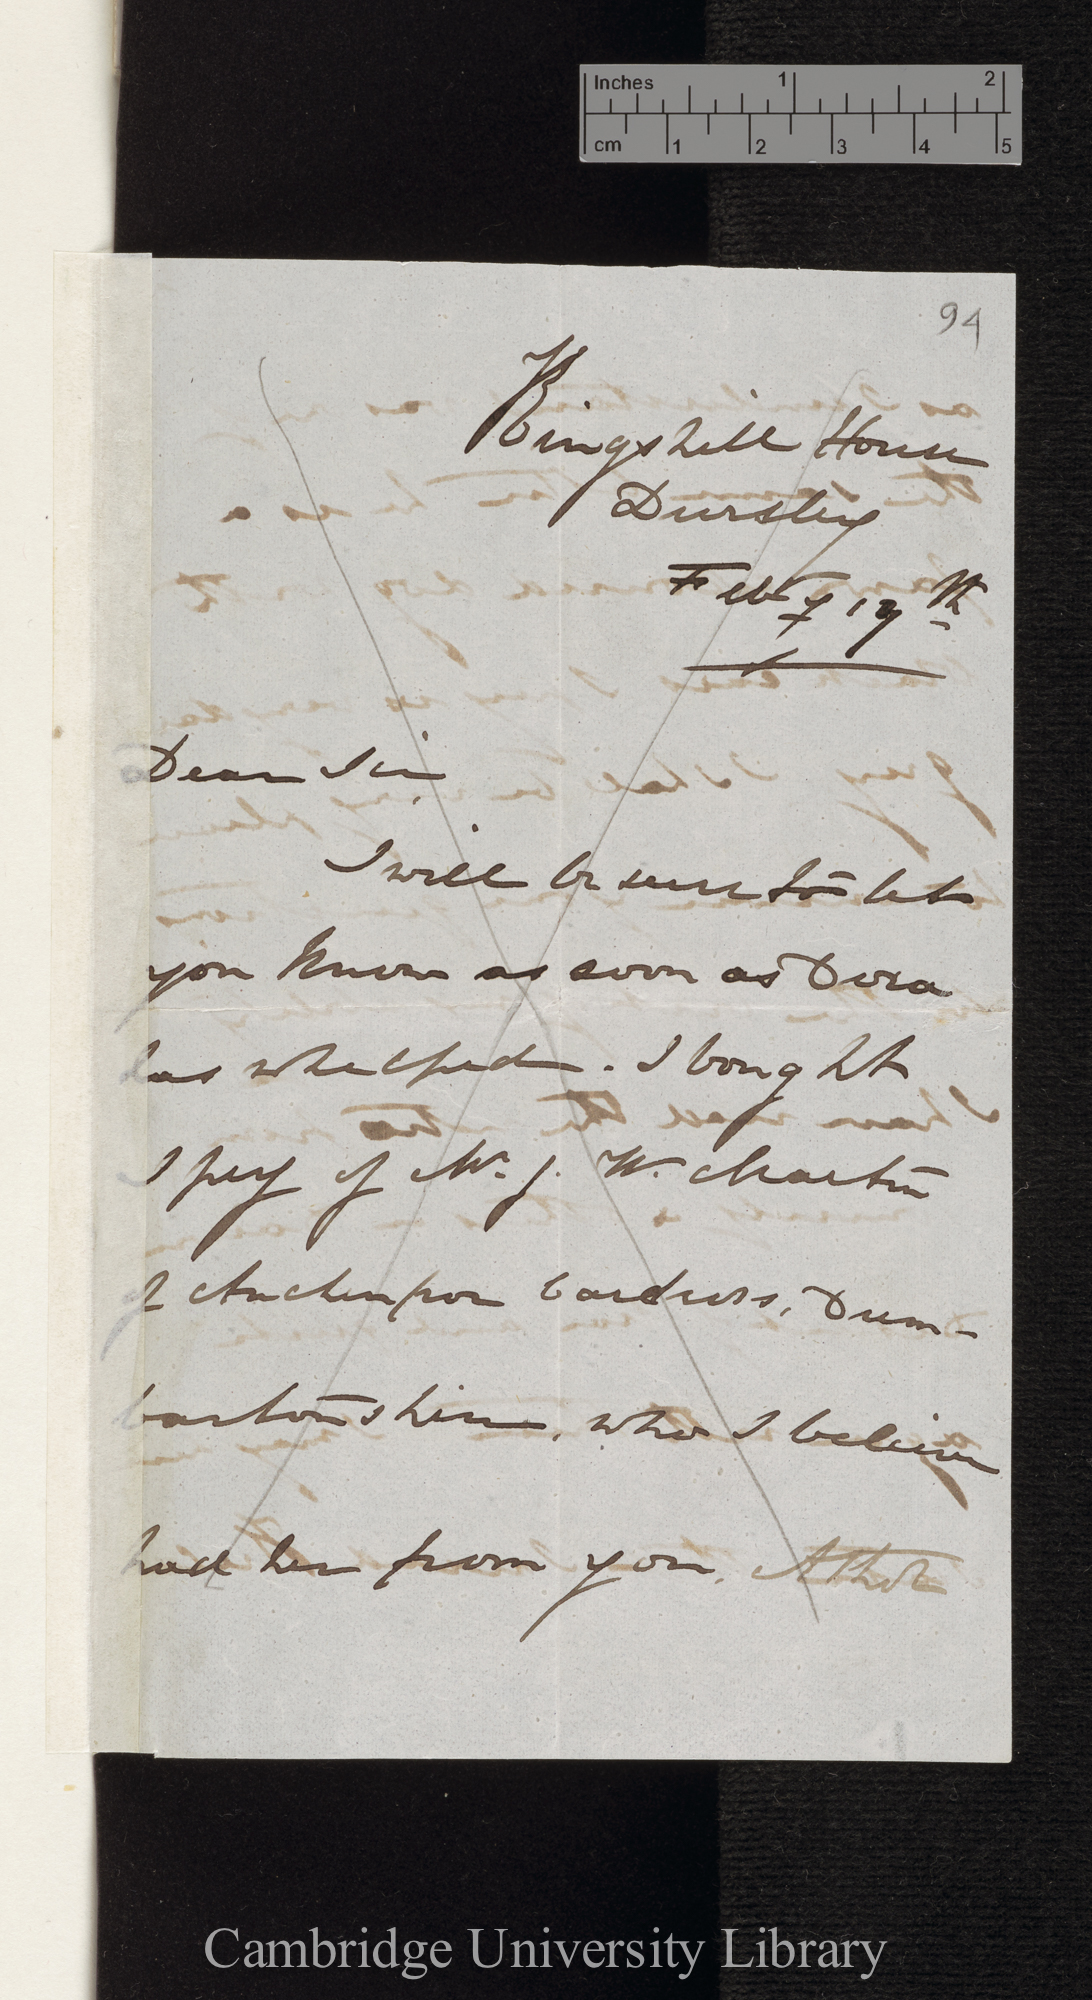 Inches 1 2
cm 1 2 3 4 5
94
Kingshill House
Dursley
Feby 17th
Dear Sir,
I will be sure to let
you know as soon as Dora
has whelped. I bought
Spey of Mr. J. W. Martin
of Auchenfroe Cardross, Dum-
bartonshire, who I believe
had her from you. Athole
Cambridge University Library